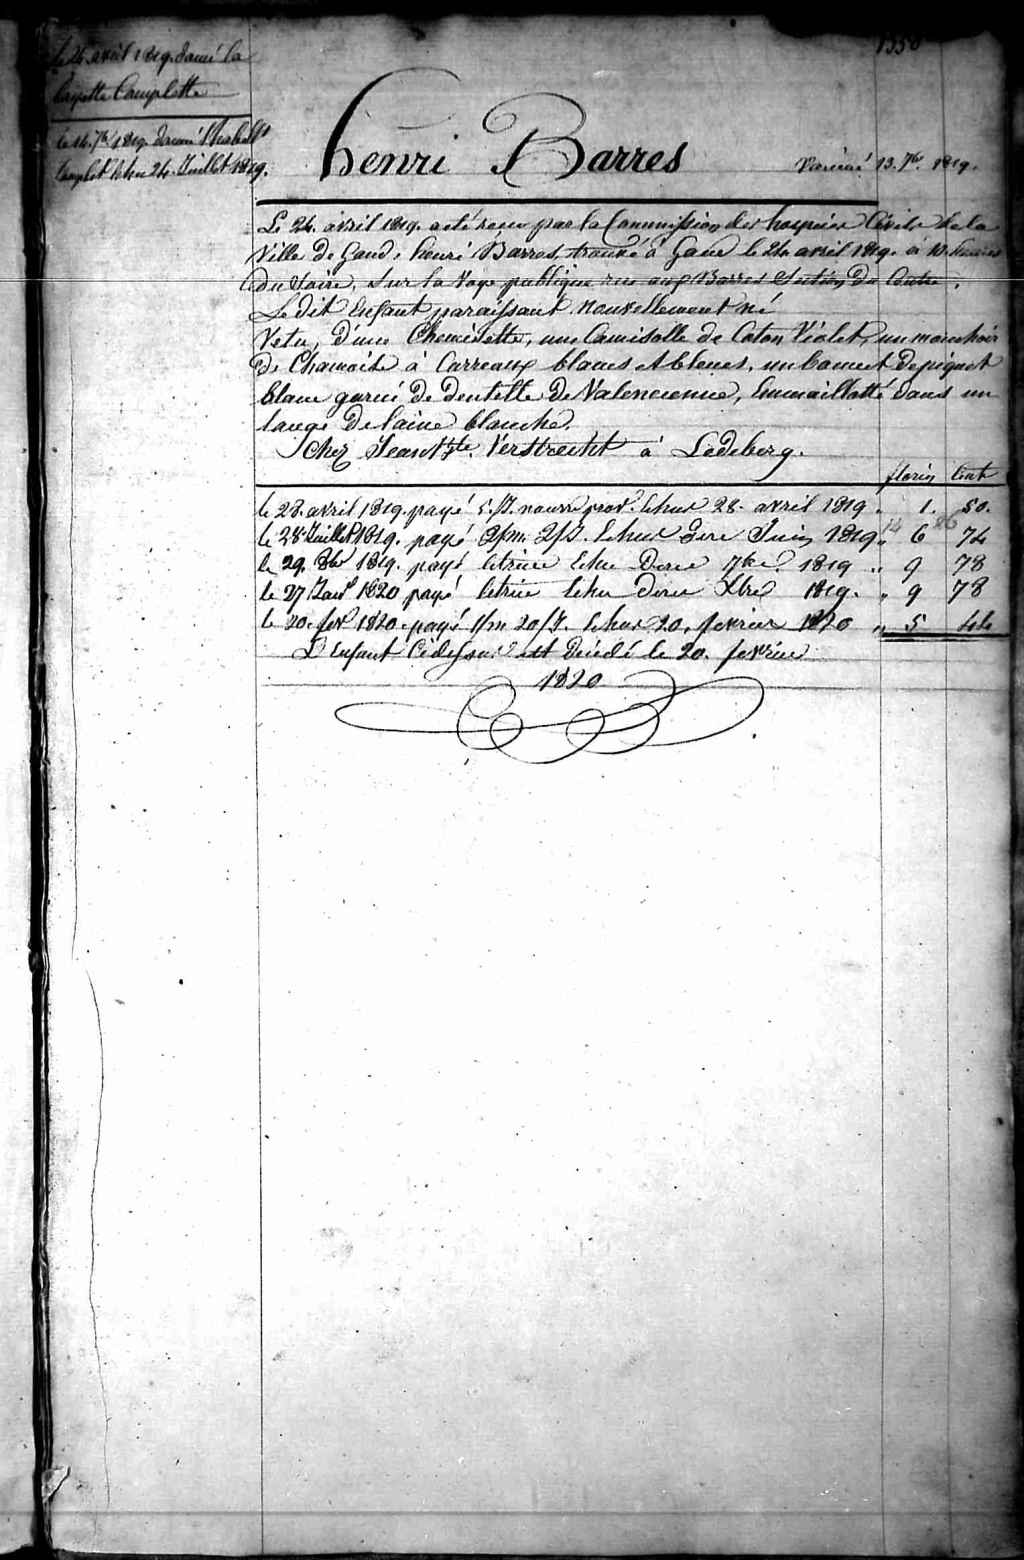 le 24. avril 1819. donné la
Layette Complette
le 14. 7bre 1819. donné l'habillt
Complet échu 24. Juillet 1819.
henri Barres
Vacciné 13. 7bre. 1819.
Le 24. avril 1819. a eté reçu par la Commission des hospices Civils de la
Ville de Gand, henri Barres, trouvé à Gand le 24 avril 1819. a 10. heures
du Soire, Sur la Voye publique rue aux Barres Section du Centre.
Ledit Enfant paraissant nouvellement né
Vetu, d'une Chemisette, une Camisolle de Coton Violet, un mouchoir
de à Carreaux blancs et bleues, un bonnet de piquet
blanc garni de dentelle de Valencienne, Emmaillotté dans un
lange de laine blanche.
Chez Jean Bte. Verstrecht à Ledeberg.
florin Cent
le 28. avril 1819. payé 5./J. nourre prov. Echue 28. avril 1819 „ 1. 50.
14 86
le 28 Juillet 1819. payé 2/m 2/J. Echue 3ere Juin 1819 „ 6 74
le 29. 8bre 1819. payé letrime Echu Derer 7bre 1819 „ 9 78
le 27 Janr 1820 payé letrime Echu derer Xbre 1819. „ 9 78
le 20. fevr 1820. payé 1/m 20/J. Echue 20. fevrier 1820 „ 5 44
L'Enfant Cidessus est Décédé le 20. fevrier
1820